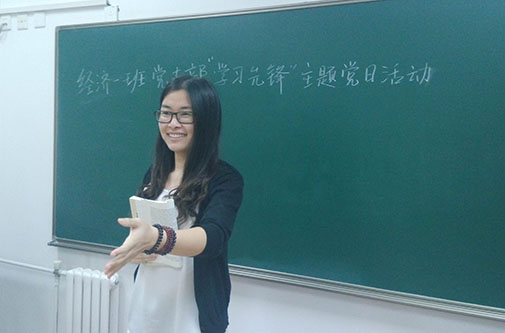 经济一班党支部"学习先锋"主题党日活动